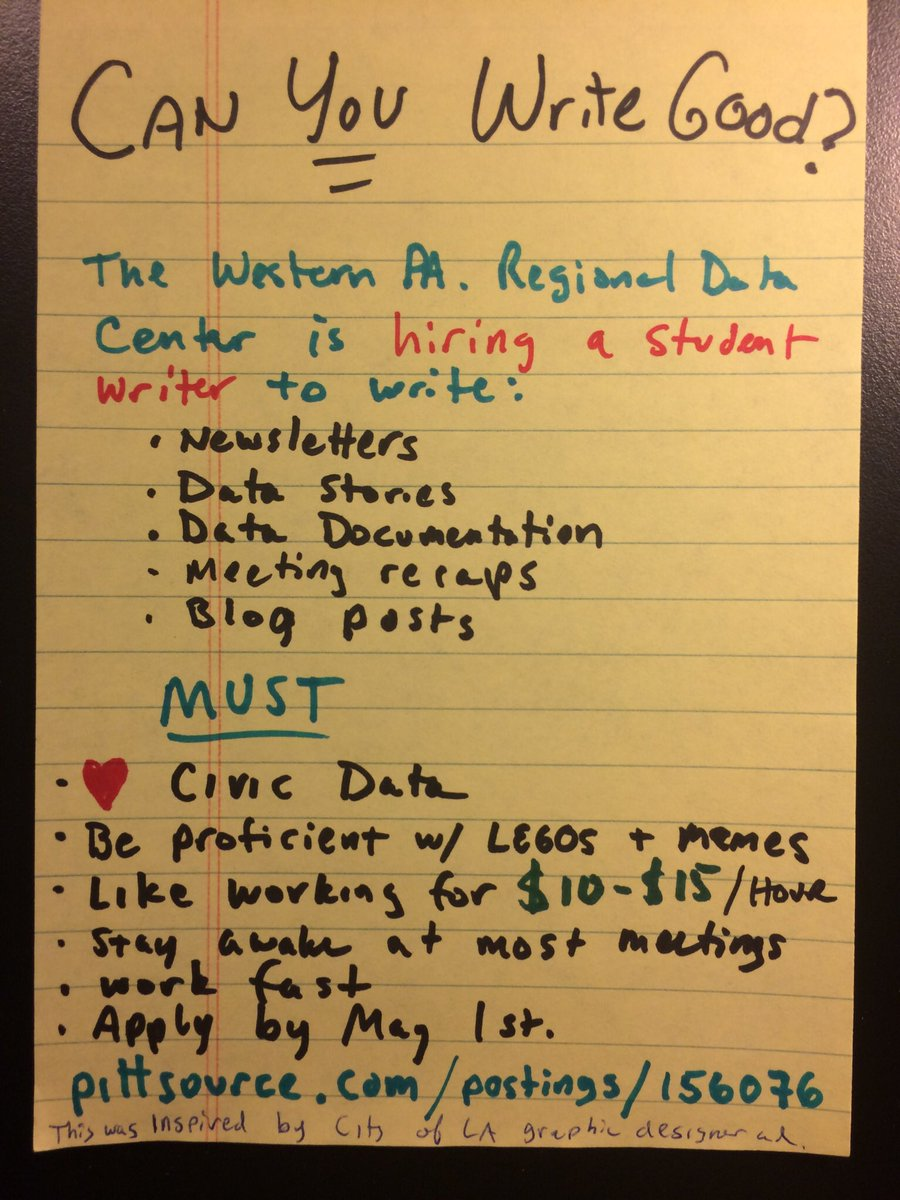 CAN YOU Write Good?
The Western PA. Regional Data
Center is hiring a student
writer to write:
• Newsletters
• Data stories
• Data Documentation
• Meeting recaps
• Blog posts
MUST
• ♥ Civic Data
• Be proficient w/ LEGOs + memes
• Like working for $10-$15/Hour
• Stay awake at most meetings
• work fast
• Apply by May 1st.
pittsource.com/postings/156076
This was Inspired by City of LA graphic designer ad.